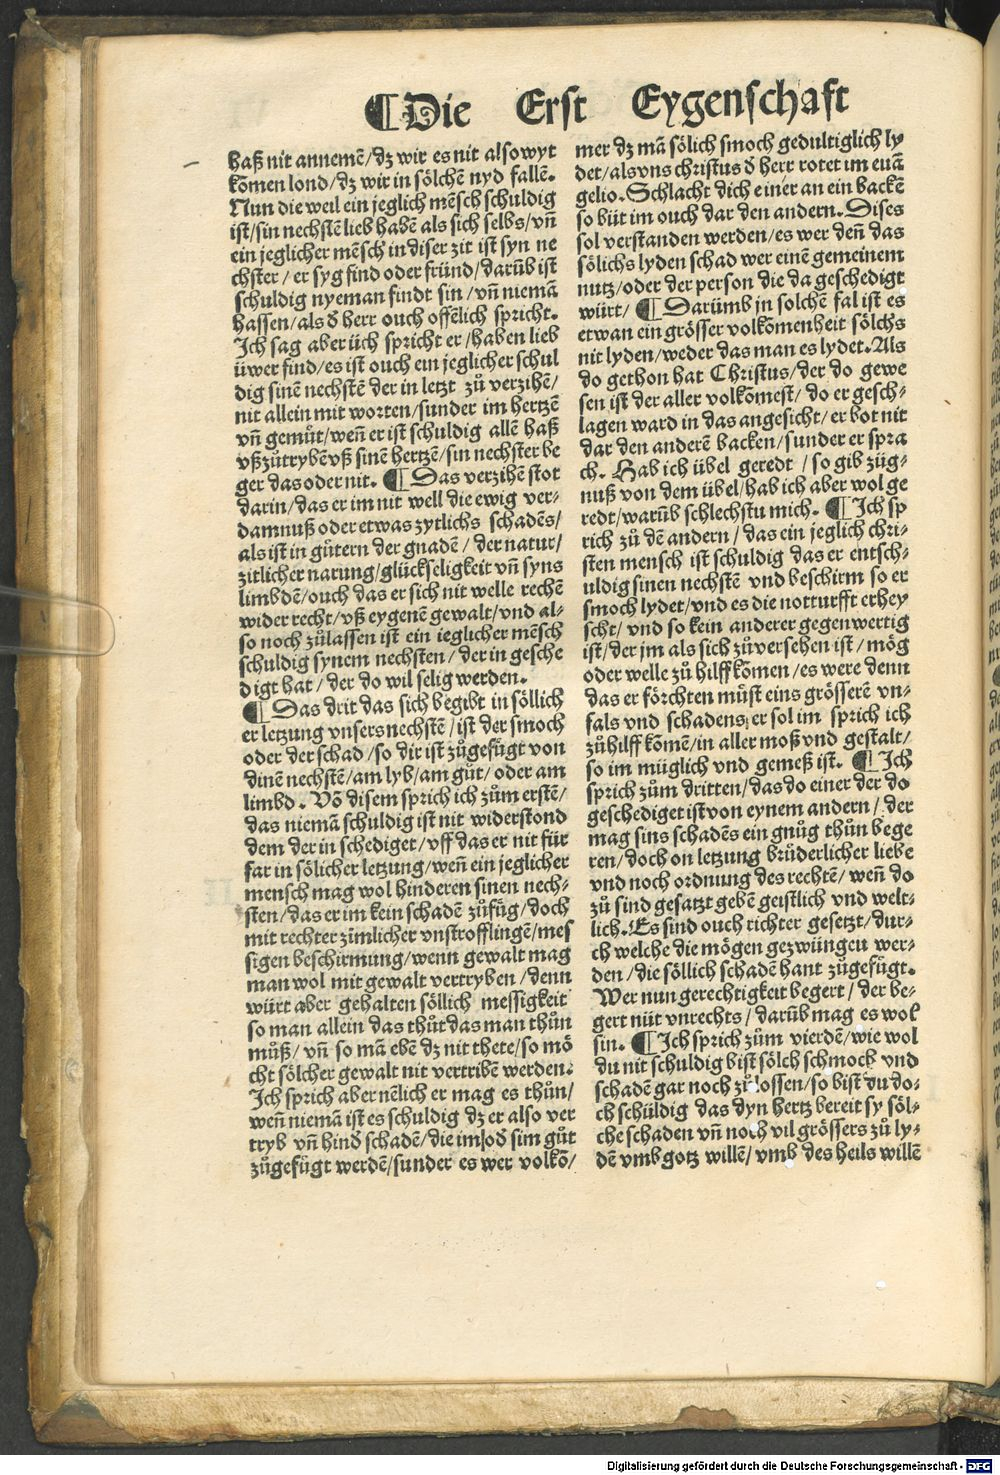 ¶Die Erst Eygenschaft
haß nit annemē/dz wir es nit also wyt
komen lond/dz wir in sölchē nyd fallē.
Nun die weil ein jeglich mēsch schuldig
ist/sin nechstē lieb habē als sich selbs/vn̄
ein jeglicher mēsch in diser zit ist syn ne
chster/er syg find oder fründ/darūb ist
schuldig nyeman findt sin/vn̄ niemā
hassen/als d̄ herr ouch offēlich spricht.
Ich sag aber üch spricht er/haben lieb
üwer find/es ist ouch ein jeglicher schul
dig sinē nechstē der in letzt zů verzihē/
nit allein mit worten/sunder im hertzē
vn̄ gemůt/wen̄ er ist schuldig allē haß
vßzůtrybē vß sinē hertzē/sin nechster be
ger das oder nit. ¶Das verzihē stot
darin/das er im nit well die ewig ver⸗
damnuß oder etwas zytlichs schadēs/
als ist in gütern der gnadē/der natur/
zitlicher narung/glückseligkeit vn̄ syns
limbdē/ouch das er sich nit welle rechē
wider recht/vß eygenē gewalt/vnd al⸗
so noch zůlassen ist ein ieglicher mēsch
schuldig synem nechsten/der in gesche
digt hat/der do wil selig werden.
¶Das drit das sich begibt in söllich
er letzung vnsers nechstē/ist der smoch
oder der schad/so dir ist zůgefügt von
dinē nechstē/am lyb/am gůt/oder am
limbd. Vō disem sprich ich zům erstē/
das niemā schuldig ist nit widerstond
dem der in schediget/vff das er nit für
far in sölicher letzung/wen̄ ein jeglicher
mensch mag wol hinderen sinen nech⸗
sten/das er im kein schadē zůfüg/doch
mit rechter zīmlicher vnstrofflingē/mes
sigen beschirmung/wenn gewalt mag
man wol mit gewalt vertryben/denn
würt aber gehalten söllich messigkeit
so man allein das thůt das man thůn
můß/vn̄ so mā ebē dz nit thete/so mö
cht sölcher gewalt nit vertribē werden.
Ich sprich aber nēlich er mag es thůn/
wen̄ niemā ist es schuldig dz er also ver
tryb vn̄ hind̄ schadē/die im od̄ sim gůt
zůgefügt werdē/sunder es wer volkō/
mer dz mā sölich smoch gedultiglich ly
det/als vns christus d̄ herr rotet im euā
gelio. Schlacht dich einer an ein backē
so büt im ouch dar den andern. Dises
sol verstanden werden/es wer den̄ das
sölichs lyden schad wer einē gemeinem
nutz/oder der person die da geschedigt
würt/ ¶Darümb jn solchē fal ist es
etwan ein grösser volkomenheit sölchs
nit lyden/weder das man es lydet. Als
do gethon hat Christus/der do gewe
sen ist der aller volkōmest/do er gesch⸗
lagen ward in das angesicht/er bot nit
dar den anderē backen/sunder er spra
ch. Hab ich übel geredt/so gib züg⸗
nuß von dem übel/hab ich aber wol ge
redt/warūb schlechstu mich. ¶Ich sp
rich zů dē andern/das ein jeglich chri⸗
sten mensch ist schuldig das er entsch⸗
uldig sinen nechstē vnd beschirm so er
smoch lydet/vnd es die notturfft erhey
scht/vnd so kein anderer gegenwertig
ist/der jm als sich zůversehen ist/mög
oder welle zů hilff kōmen/es were denn
das er förchten můst eins grösserē vn⸗
fals vnd schadens er sol im sprich ich
zů hilff komē/in aller moß vnd gestalt/
so im müglich vnd gemeß ist. ¶Ich
sprich zům dritten/das do einer der do
geschediget ist von eynem andern/der
mag sins schadēs ein gnůg thůn bege
ren/doch on letzung brüderlicher liebe
vnd noch ordnung des rechtē/wen̄ do
zů sind gesatzt gebē geistlich vnd welt⸗
lich. Es sind ouch richter gesetzt/dur⸗
ch welche die mögen gezwüngen wer⸗
den/die söllich schadē hant zůgefügt.
Wer nun gerechtigkeit begert/der be⸗
gert nüt vnrechts/darūb mag es wol
sin. ¶Ich sprich zům vierdē/wie wol
du nit schuldig bist sölch schmoch vnd
schadē gar noch zů lossen/so bist du do⸗
ch schüldig das dyn hertz bereit sy söl⸗
che schaden vn̄ noch vil grössers zů ly⸗
dē vmb gotz willē/vmb des heils willē
Digitalisierung gefördert durch die Deutsche Forschungsgemeinschaft - DFG